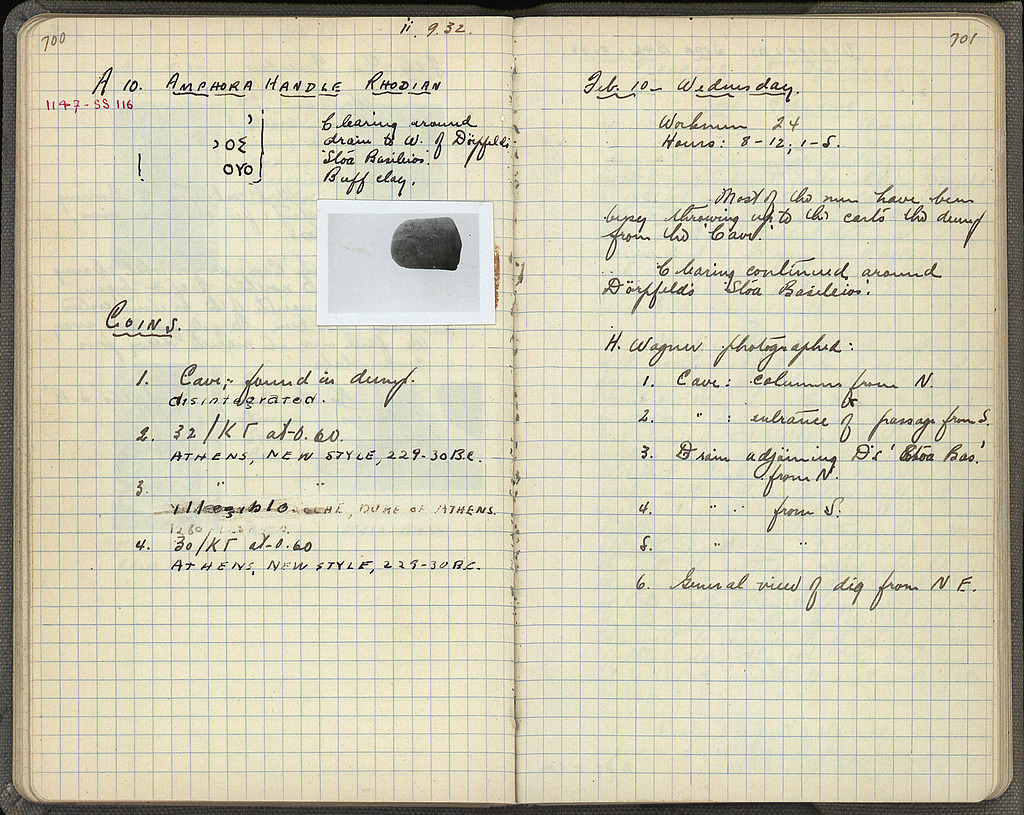 700
ii. 9.32.
A 10. AMPHORA HANDLE RHODIAN
1147-SS 116
Clearing around
drain to W. of Dörpfeld's
'Stoa Basileios'.
Buff clay.
COINS.
1. Cave: found in dump.
disintegrated.
2. 32/ΚΓ at -0.60.
ATHENS, NEW STYLE, 229-30 B.C.
3. " "
illegible DUKE OF ATHENS.
4. 30/ΚΓ at -0.60
ATHENS, NEW STYLE, 229-30 B.C.
701
Feb. 10 - Wednesday.
Workmen 24
Hours: 8-12; 1-5.
Most of the men have been
busy throwing up to the carts the dump
from the 'Cave.'
Clearing continued around
Dörpfeld's 'Stoa Basileios'.
H. Wagner photographed:
1. Cave: columns from N.
2. " : entrance of passage from S.
3. Drain adjoining D's 'Stoa Bas.'
from N.
4. " " from S.
5. " "
6. General view of dig from N E.